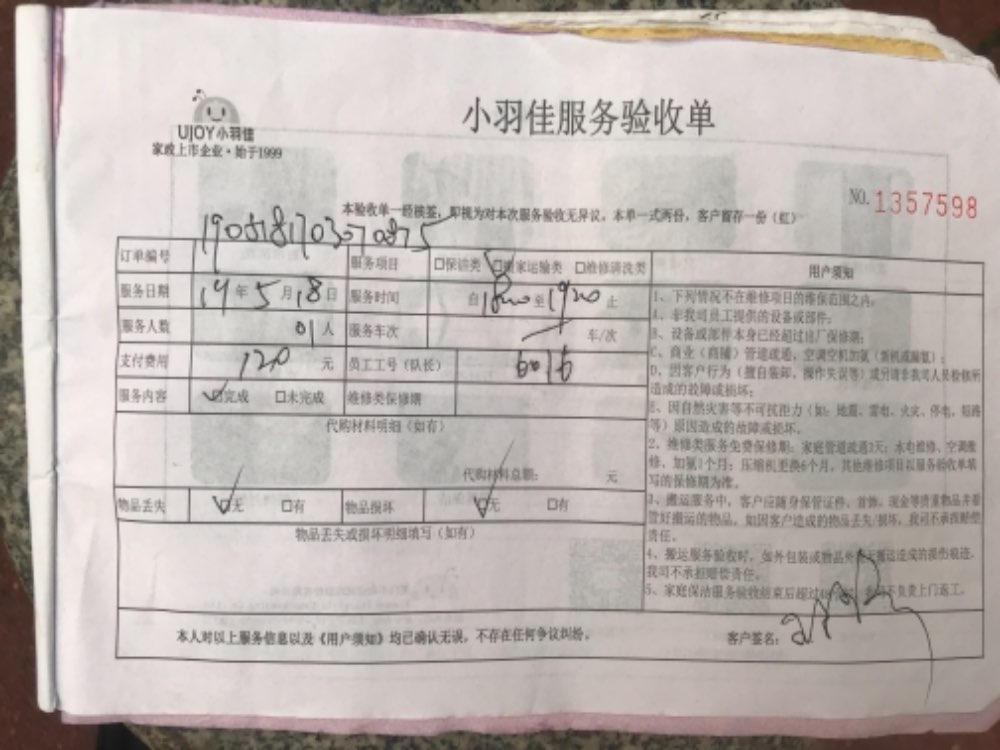 UJOY小羽佳
家政上市企业·始于1999
小羽佳服务验收单
NO.1357598
本验收单一经核签，即视为对本次服务验收无异议。本单一式两份，客户留存一份（红）
订单编号 190518170370875 服务项目 □保洁类 □搬家运输类 □维修清洗类
服务日期 19年5月18日 服务时间 自1820至1920止
服务人数 01人 服务车次 车/次
支付费用 120元 员工工号（队长） 6016
服务内容 □完成 □未完成 维修类保修期
代购材料明细（如有）
代购材料总额： 元
物品丢失 □无 □有 物品损坏 □无 □有
物品丢失或损坏明细填写（如有）
用户须知
1、下列情况不在维修项目的维保范围之内：
A、非我司员工提供的设备或部件；
B、设备或部件本身已经超过出厂保修期；
C、商业（商铺）管道疏通，空调空机加氟（新机或漏氟）；
D、因客户行为（擅自装卸、操作失误等）或另请非我司人员检修所
造成的故障或损坏；
E、因自然灾害等不可抗拒力（如：地震、雷电、火灾、停电、短路
等）原因造成的故障或损坏。
2、维修类服务免费保修期：家庭管道疏通3天；水电维修、空调维
修、加氟1个月；压缩机更换6个月，其他维修项目以服务验收单填
写的保修期为准。
3、搬运服务中，客户应随身保管证件、首饰、现金等贵重物品并看
管好搬运的物品。如因客户造成的物品丢失/损坏，我司不承担赔偿
责任。
4、搬运服务验收时，如外包装或物品外 搬运造成的损伤痕迹，
我司不承担赔偿责任。
5、家庭保洁服务验收结束后超过 不负责上门返工。
本人对以上服务信息以及《用户须知》均已确认无误，不存在任何争议纠纷。 客户签名：